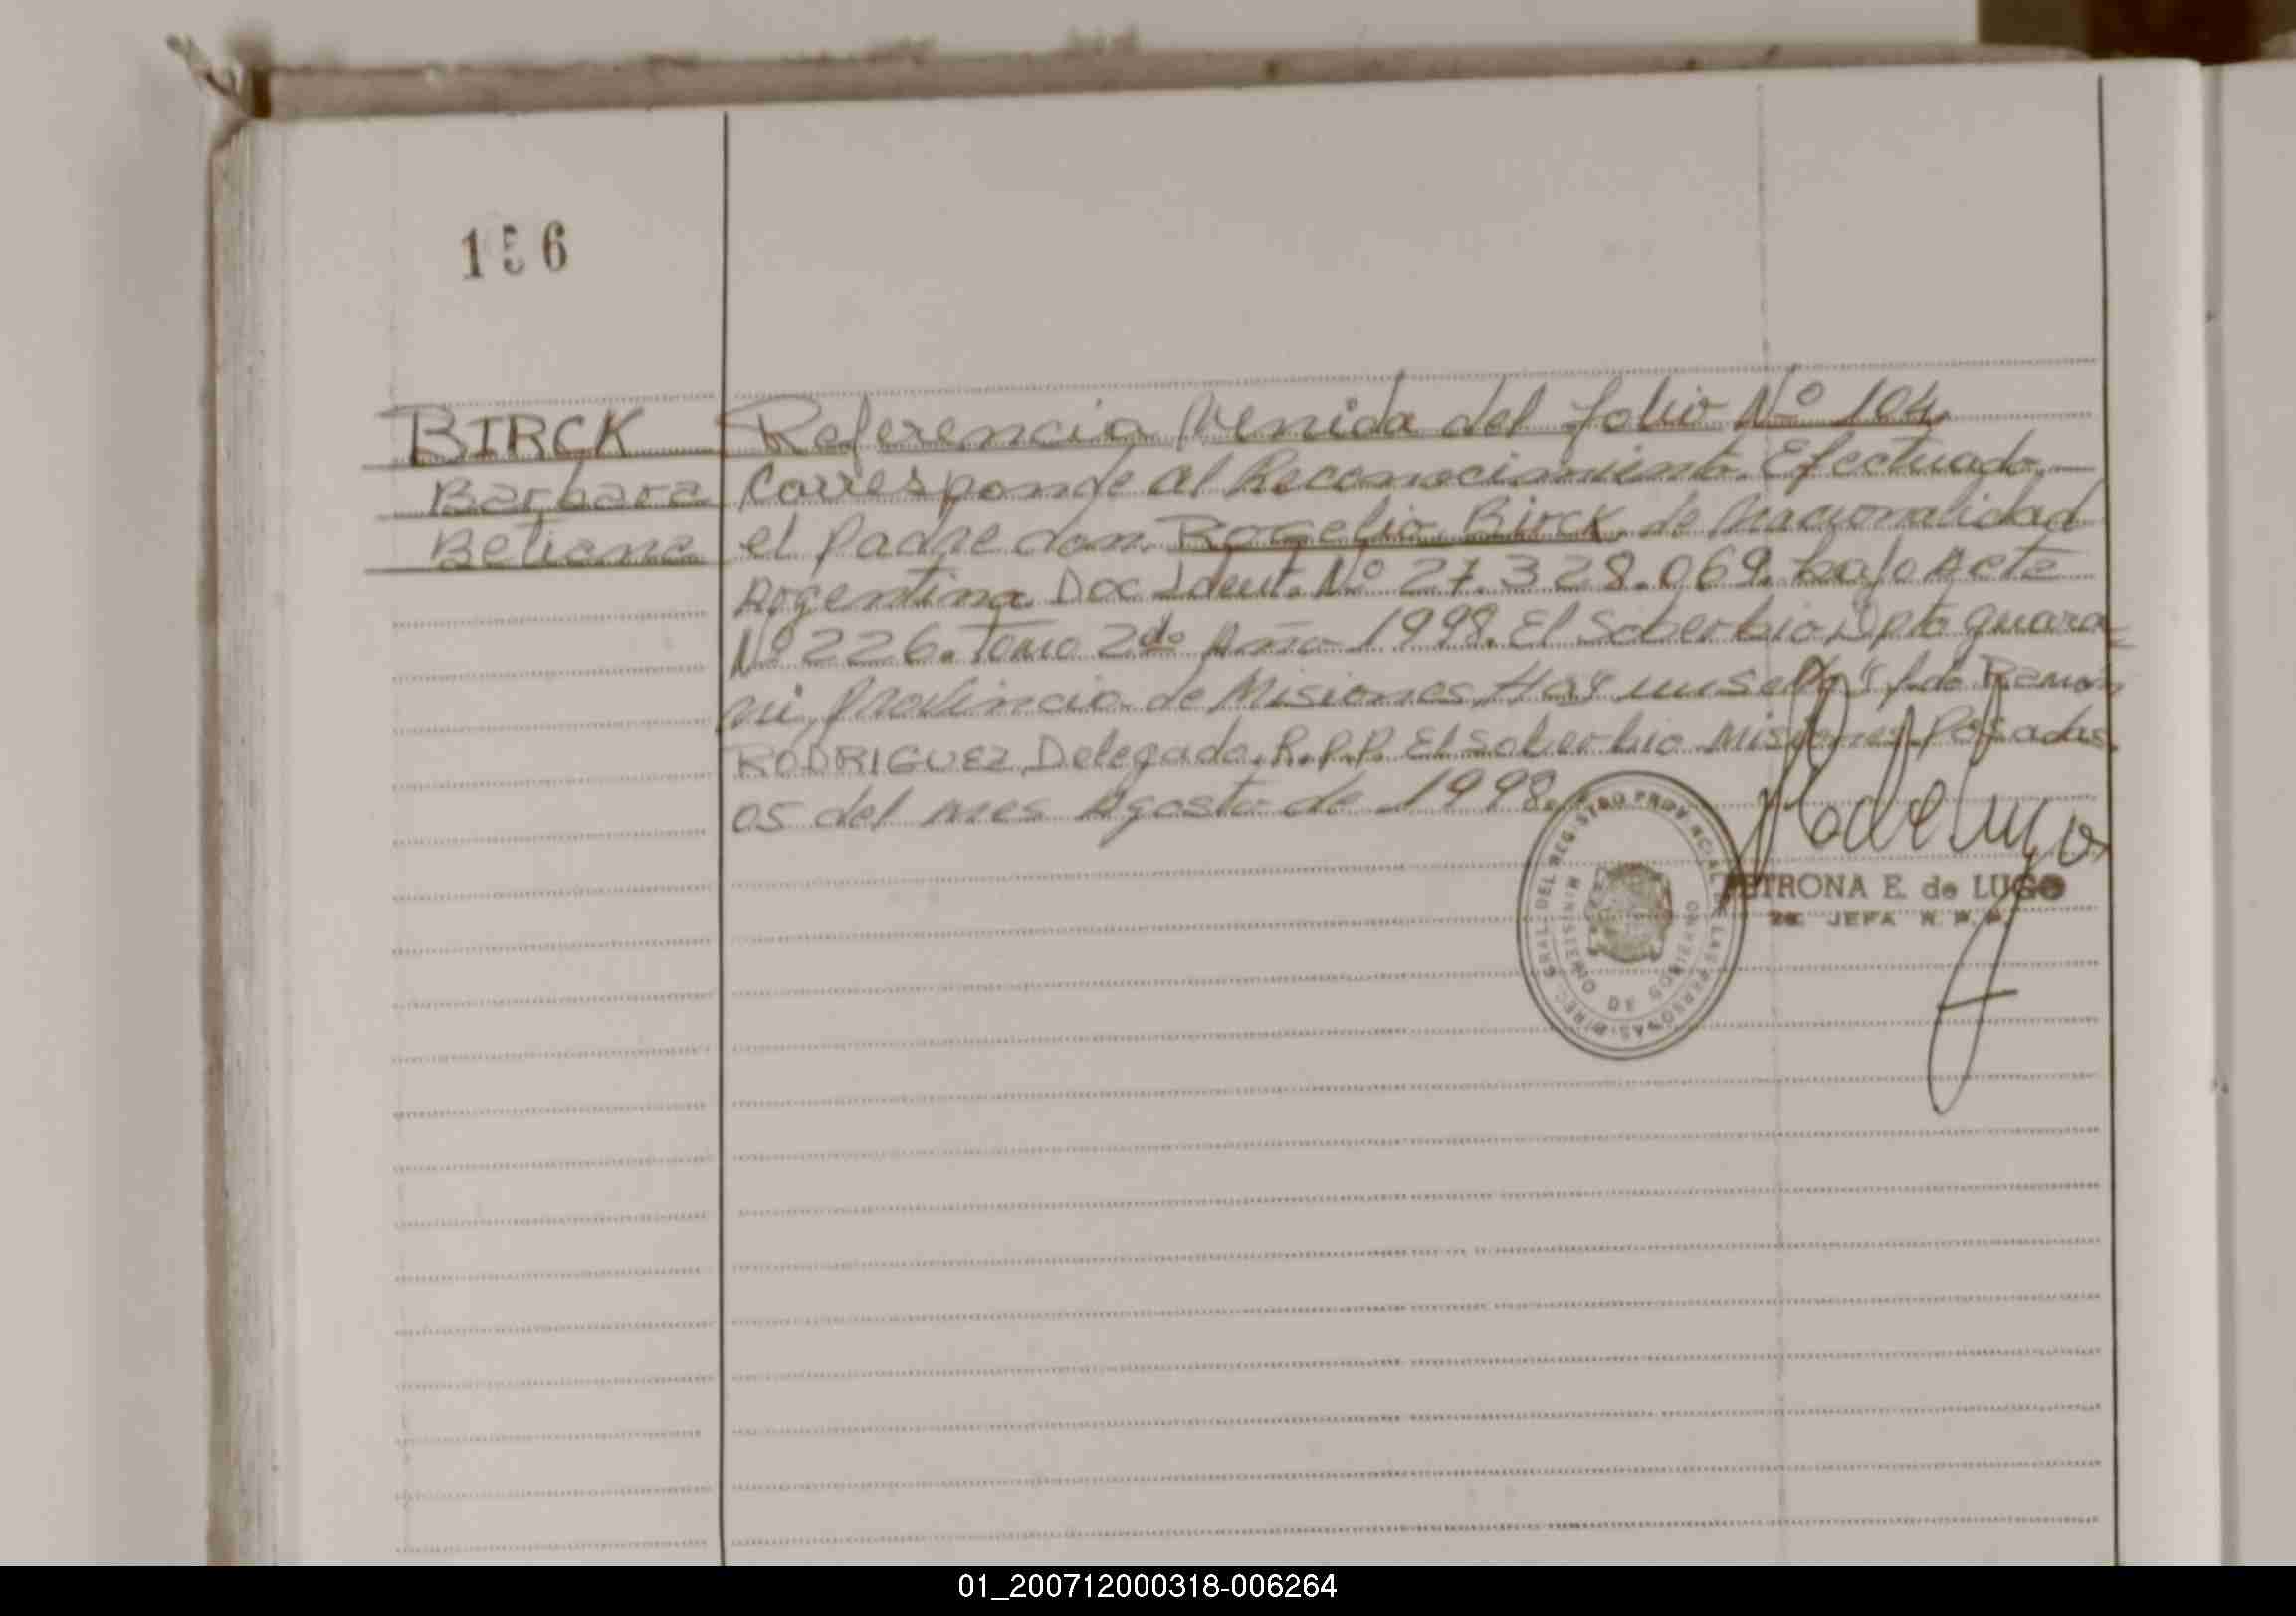 156
BIRCK
Barbara
Betiana
Referencia Venida del folio Nº 104.
Corresponde al Reconocimiento Efectuado
el Padre don Rogelio Birck de Nacionalidad
Argentina Doc Ident. Nº 27.328.069. bajo Acta
Nº 226. Tomo 2do Año 1998. El Soberbio, Dpto guara=
ni, Provincia de Misiones, Hay un sello y fdo Ramon
RODRIGUEZ, Delegado, R.P.P. El Soberbio Misiones Posadas
05 del mes Agosto de 1998
DIREC. GRAL. DEL REGISTRO PROVINCIAL DE LAS PERSONAS
MINISTERIO DE GOBIERNO
PETRONA E. de LUGO
2a. JEFA R.P.P.
01_200712000318-006264